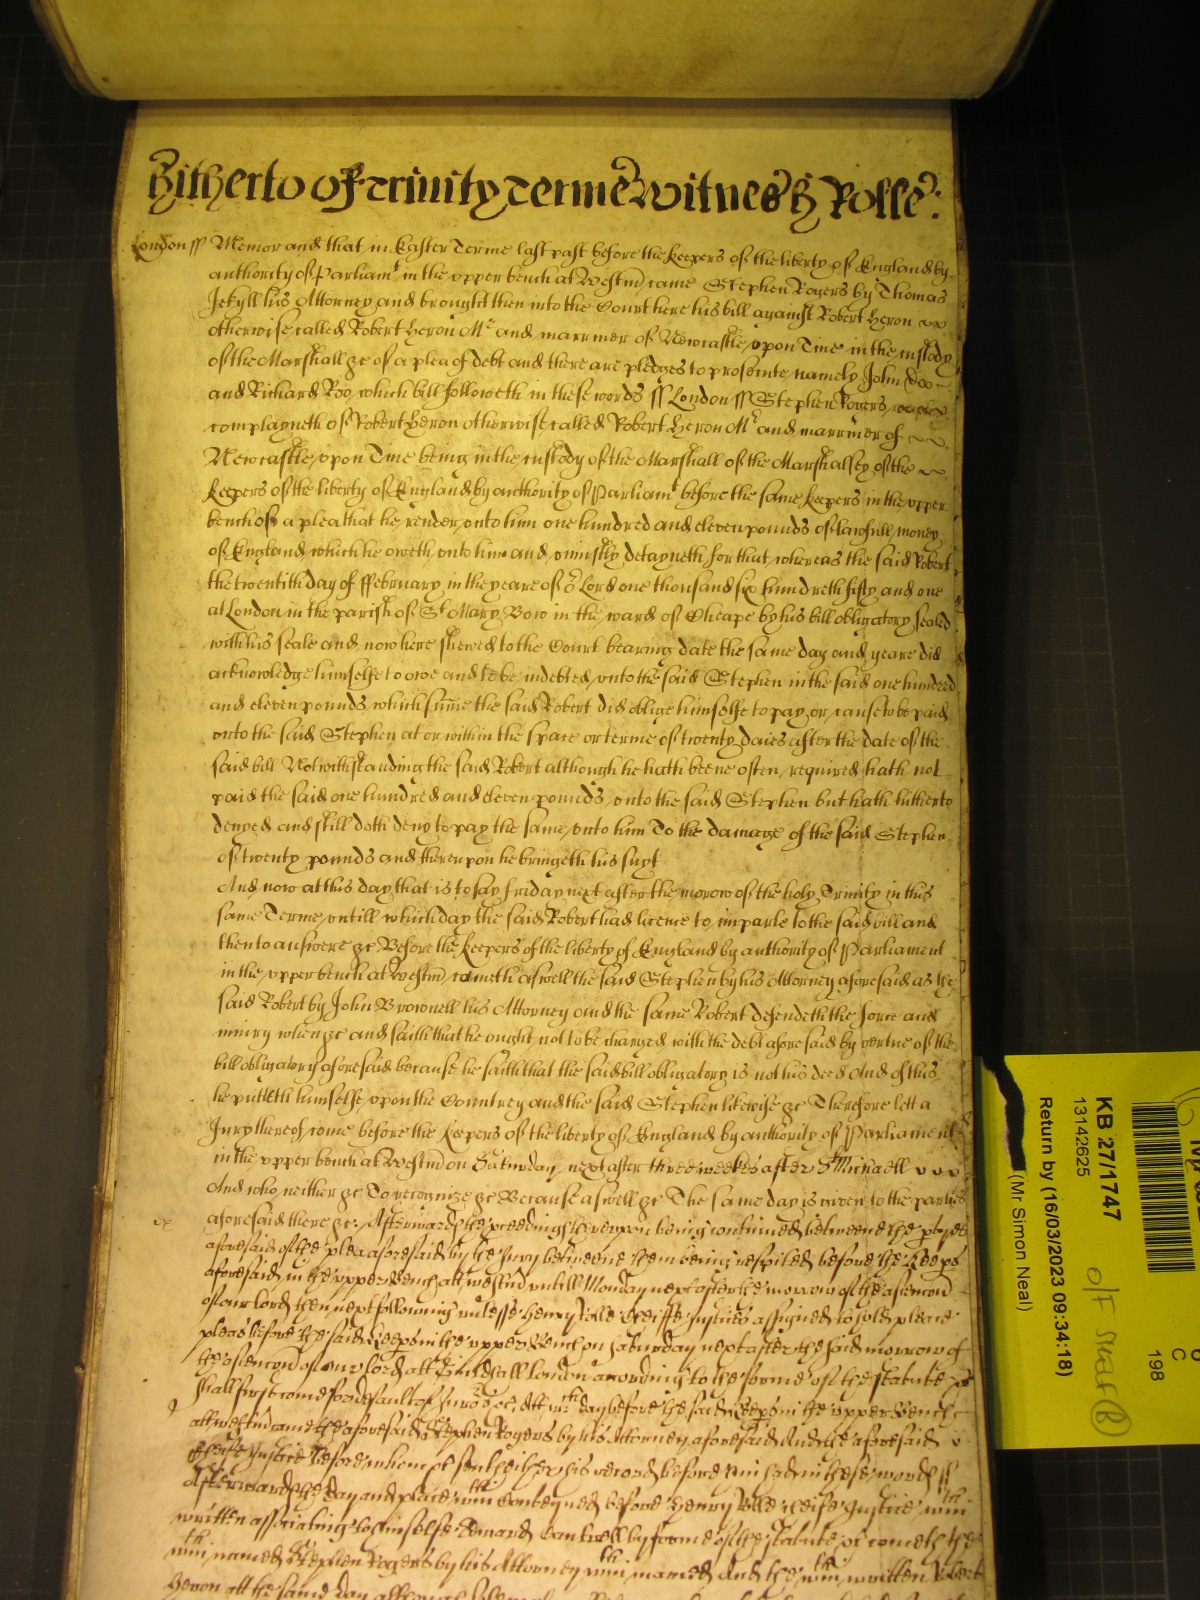 Hitherto of Trinity Terme Witnes H Rolle:
London ss Memorand that in Easter Terme last past before the keepers of the liberty of England by
authority of Parliamt in the vpper bench at Westm came Stephen Rogers by Thomas
Jekyll his Attorney and brought then into the Court here his bill against Robert Heron
otherwise called Robert Heron Mr and marriner of Newcastle vpon Tine in the custody
of the Marshall &c of a plea of debt and there are pledges to prosecute namely John Doo
and Richard Roo which bill followeth in these words ss London ss Stephen Rogers
complayneth of Robert Heron otherwise called Robert Heron Mr and marriner of
Newcastle vpon Tine being in the custody of the Marshall of the Marshalsey of the
keepers of the liberty of England by authority of Parliamt before the same keepers in the vpper
bench of a plea that he render vnto him one hundred and eleven pounds of lawfull money
of England which he oweth vnto him and vniustly detayneth for that whereas the said Robert
the twentith day of ffebruary in the yeare of or Lord one thousand six hundreth fifty and one
at London in the parish of St Mary Bow in the ward of Cheape by his bill obligatory sealed
with his seale and now here shewed to the Court bearing date the same day and yeare did
acknowledge himselfe to owe and to be indebted vnto the said Stephen in the said one hundred
and eleven pounds which sume the said Robert did oblige himselfe to pay or cause to be paid
vnto the said Stephen at or within the space or terme of twenty daies after the date of the
said bill Notwithstanding the said Robert although he hath beene often required hath not
paid the said one hundred and eleven pounds vnto the said Stephen but hath hitherto
denyed and still doth deny to pay the same vnto him To the damage of the said Stephen
of twenty pounds and thereupon he bringeth his suyt
And now at this day that is to say friday next after the morow of the holy Trinity in this
same Terme vntill which day the said Robert had licence to imparle to the said bill and
then to answere &c Before the keepers of the liberty of England by authority of Parliament
in the vpper bench at Westm cometh aswell the said Stephen by his Attorney aforesaid as the
said Robert by John Brownell his Attorney and the same Robert defendeth the force and
iniury when &c and saith that he ought not to be charged with the debt aforesaid by vertue of the
bill obligatory aforesaid because he saith that the said bill obligatory is not his deed And of this
he putteth himselfe vpon the Countrey and the said Stephen likewise &c Therefore lett a
Jury thereof come before the keepers of the liberty of England by authority of Parliament
in the vpper bench at Westm on Saturday next after three weekes after St Michaell
And who neither &c To recognize &c Because aswell &c The same day is given to the parties
aforesaid there &c. Afterwards the pceedings therevpon being continued betweene the ptyes
aforesaid of the plea aforesaid by the Jury betweene them being respited before the Keeps
aforesaid in the vpper Bench att Westmd vntill Monday next after the morrow of the Ascencon
of our lord then next following vnlesse Henry Rolle Cheiffe Justice assigned to hold pleas
pleas before the said Keeps in the vpper Bench on saturday next after the said morrow of
the Ascencon of our Lord att Guildhall London according to the forme of the statute &c
shall first come for default of Jurors &c Att wch day before the said Keeps in the vpper Bench
att westmd came the aforesaid Stephen Rogers by his Attorney aforesaid And the aforesaid
Cheife Justice before whom &c sent hither his record before him had in these words ss
Afterwards the day and place within conteyned before Henry Rolle cheife Justice within
written associating to himselfe Edward Cantwell by forme of the statute &c cometh the
within named Stephen Rogers by his Attorney within named And the within written Robert
Heron att the same day although
KB 27/1747
13142625
Return by (16/03/2023 09:34:18)
(Mr Simon Neal)
C
198